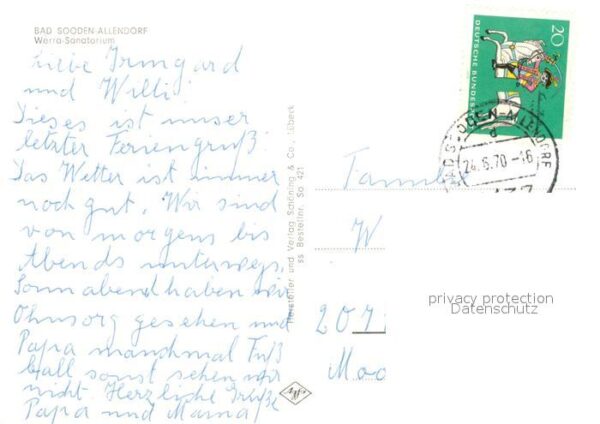 BAD SOODEN-ALLENDORF
Werra-Sanatorium
Liebe Irmgard
und Willi!
Dieses ist unser
letzter Feriengruß.
Das Wetter ist immer
noch gut. Wir sind
von morgens bis
Abends unterwegs.
Sonnabend haben wir
Ohnsorg gesehen und
Papa manchmal Fuß
ball sonst sehen wir
nicht Herzliche Grüße
Papa und Mama
Hersteller und Verlag Schöning & Co., Lübeck
ss Bestellnr. So 421
20
DEUTSCHE BUNDES
BAD SOODEN-ALLENDORF
d
24.6.70-16
Familie
W
207
Moo
privacy protection
Datenschutz